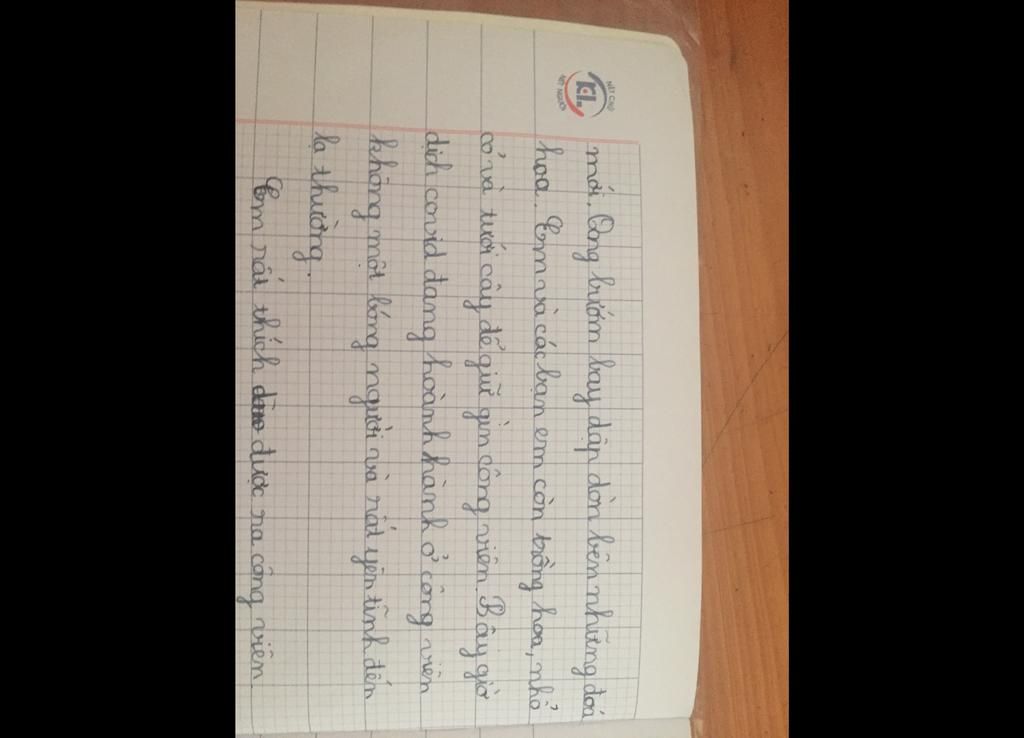 NÉT CHỮ
KL
NẾT NGƯỜI
mới. Ong bướm bay dập dờn bên những đoá
hoa. Em và các bạn em còn trồng hoa, nhổ
cỏ và tưới cây để giữ gìn công viên. Bây giờ
dịch convid đang hoành hành ở công viên
không một bóng người và rất yên tĩnh đến
lạ thường.
Em rất thích được ra công viên.